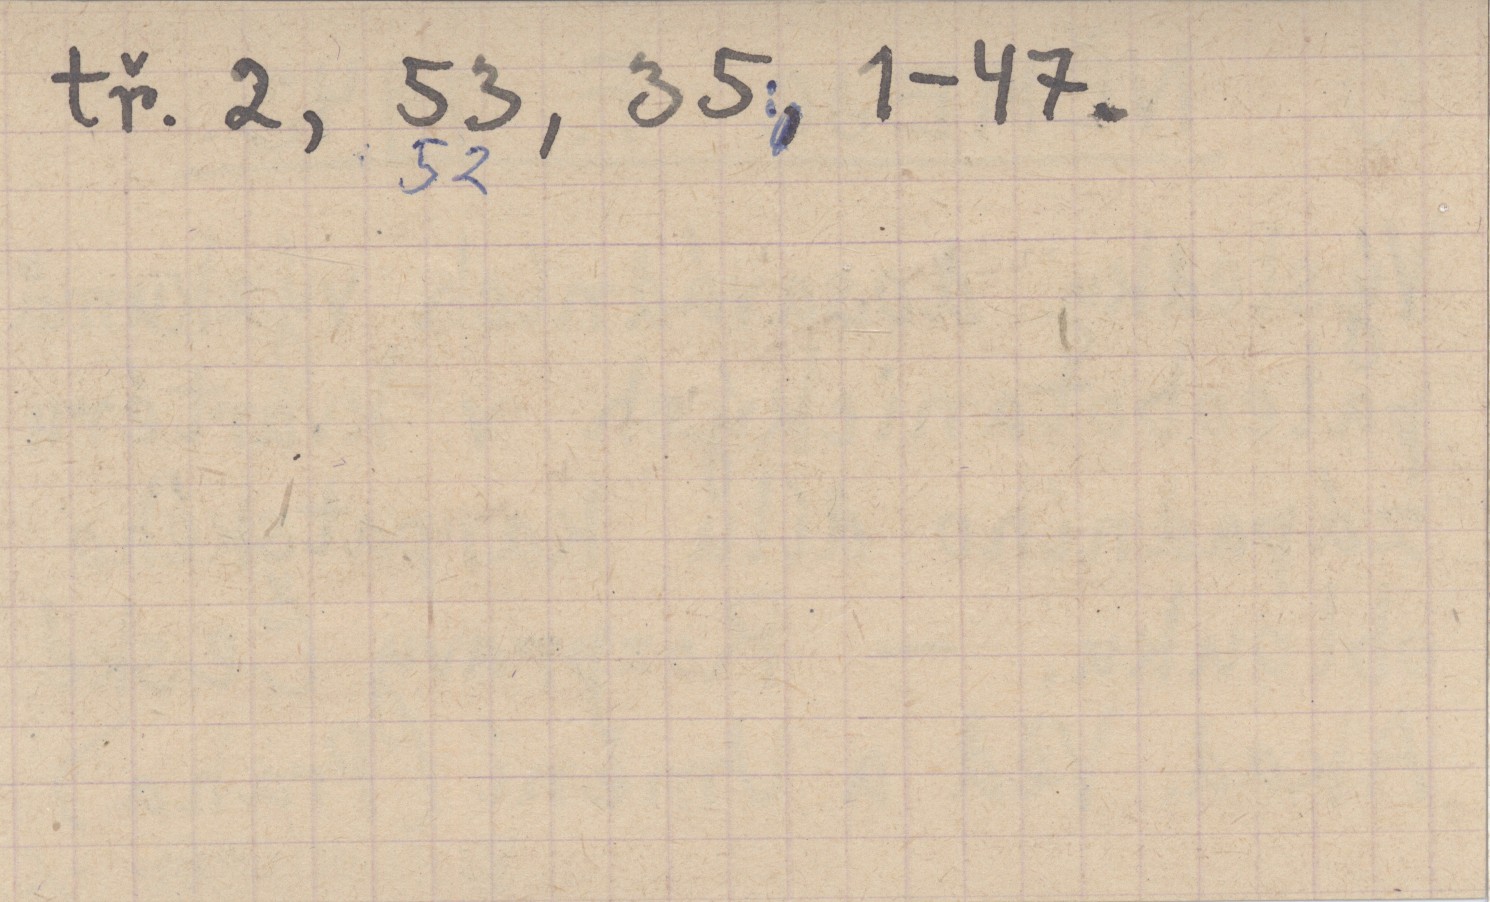 tř. 2, 53, 35:, 1-47.
52